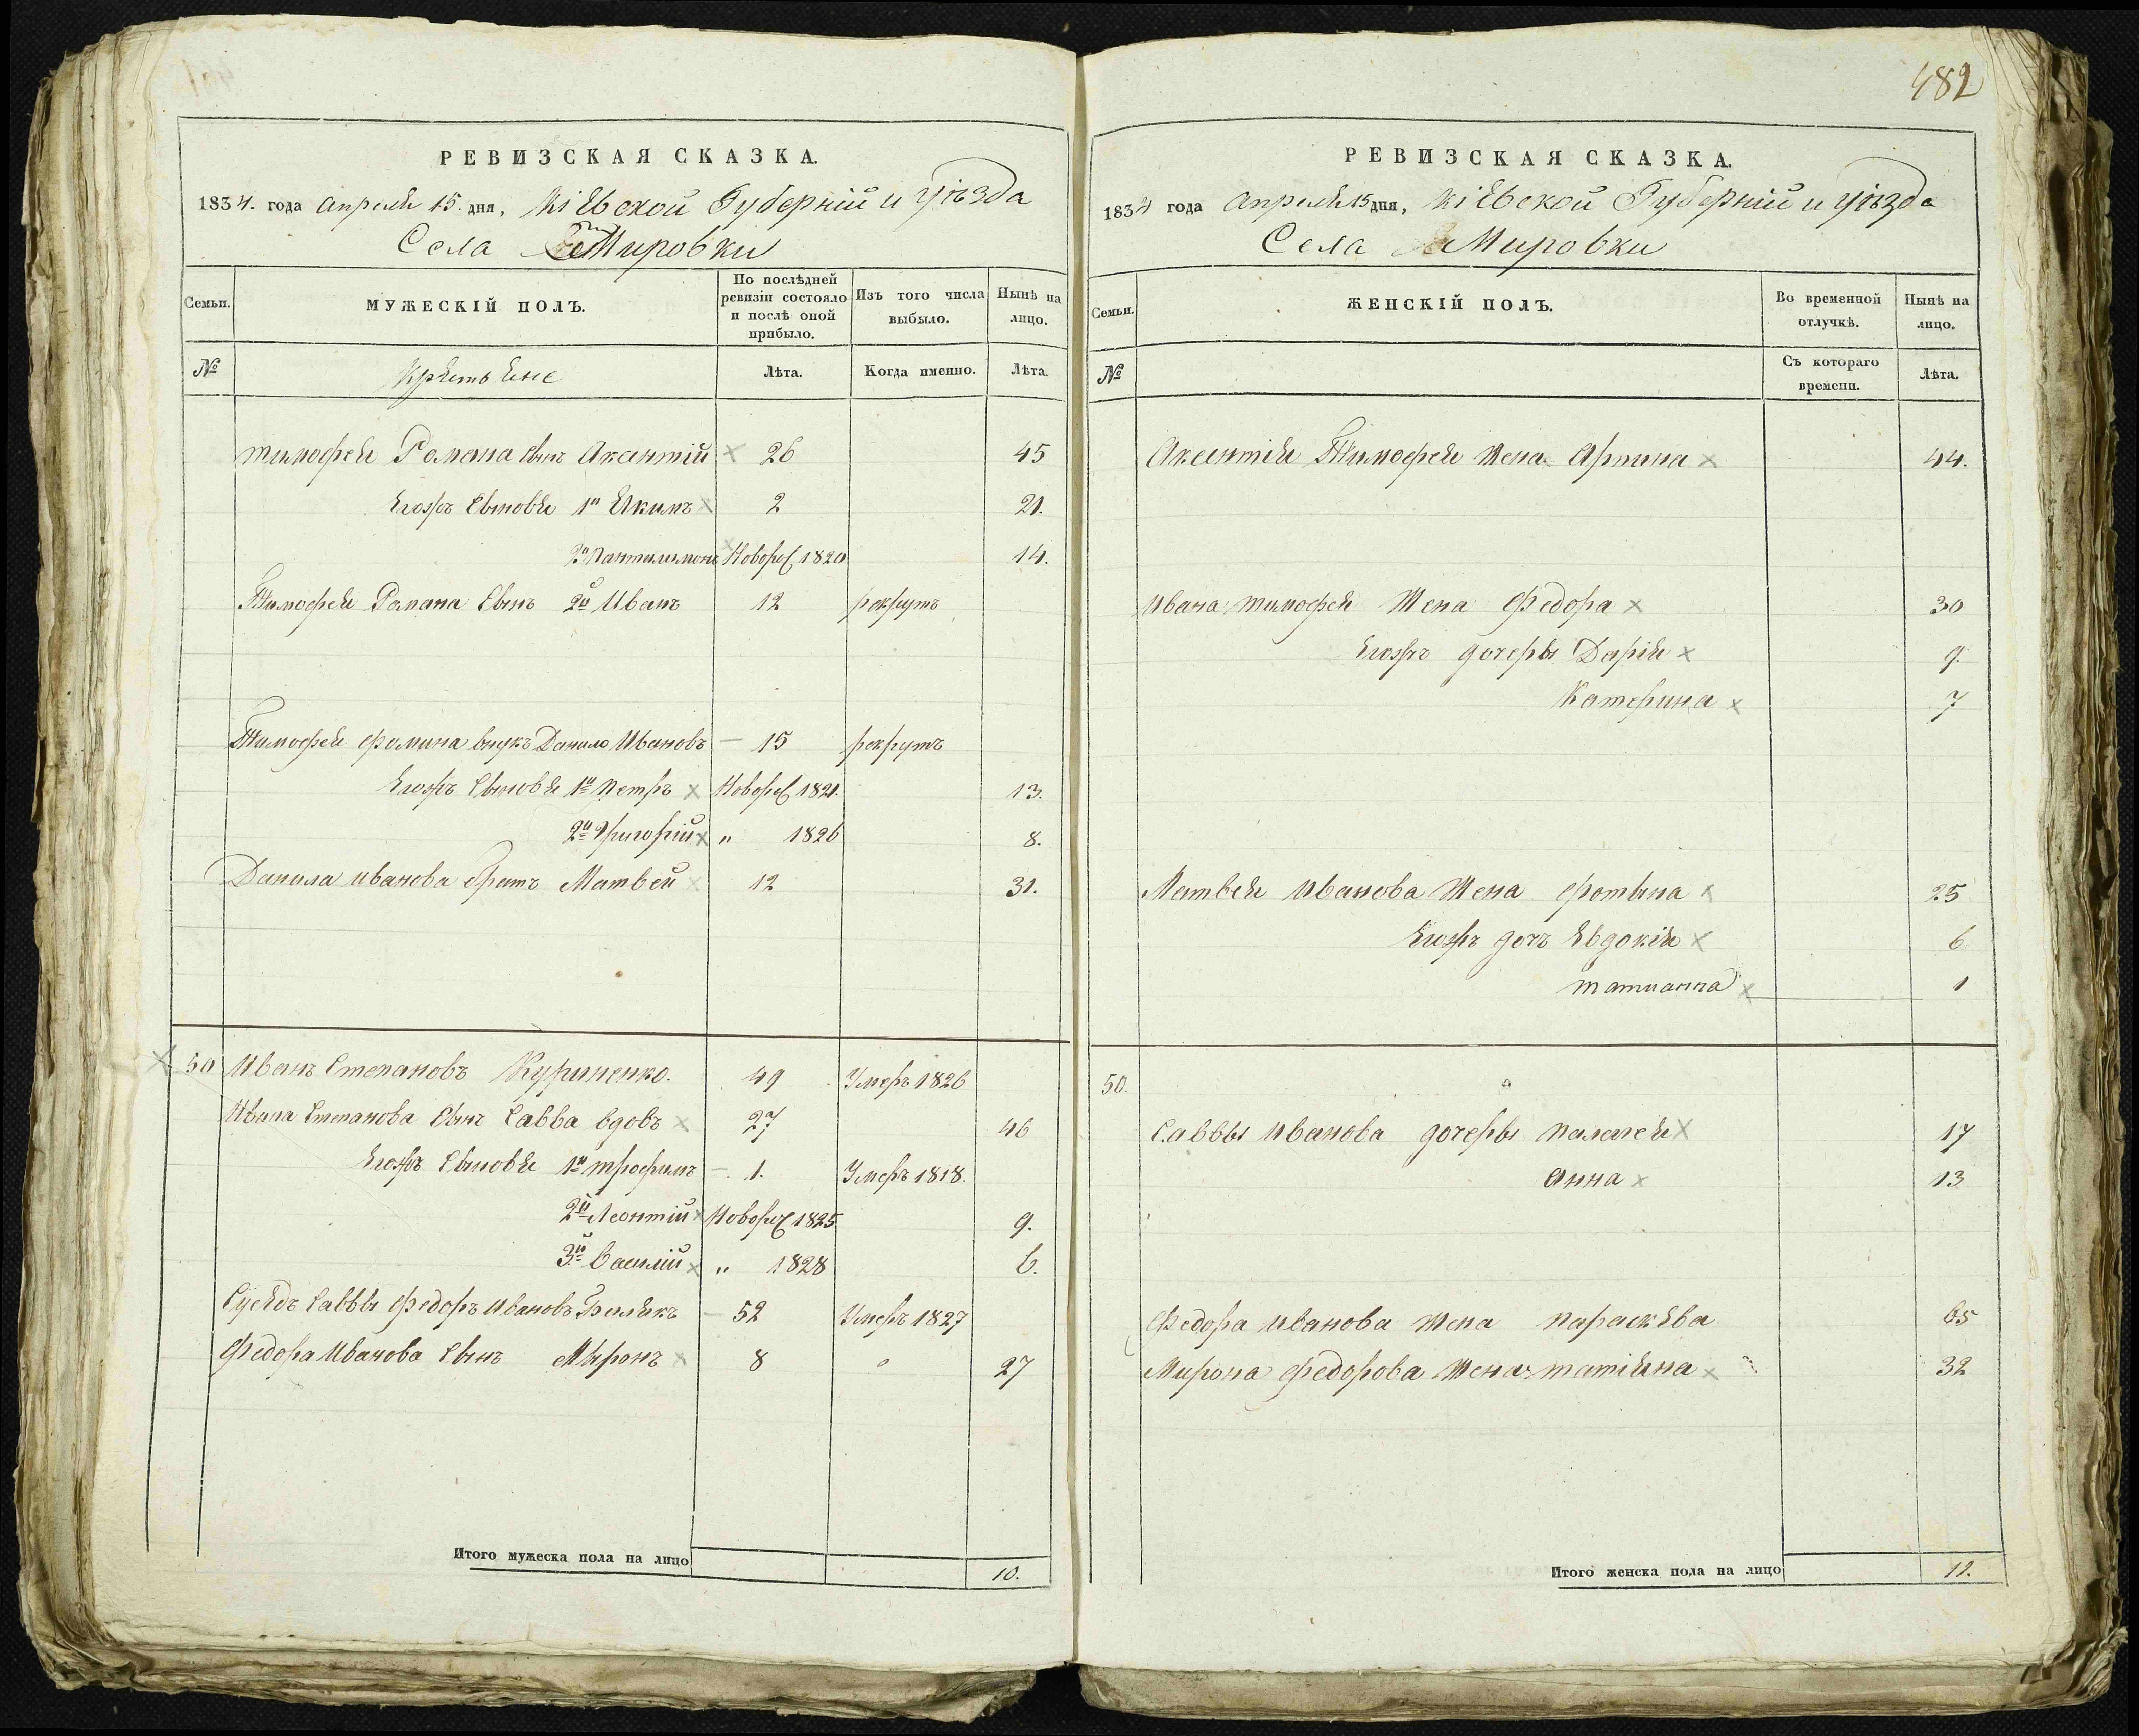 482
РЕВИЗСКАЯ СКАЗКА.
1834. года Апреля 15. дня, Кіевской Губерніи и уѣзда
Села Мировки
Семьи.
МУЖЕСКІЙ ПОЛЪ.
По послѣдней ревизіи состояло и послѣ оной прибыло.
Изъ того числа выбыло.
Нынѣ на лицо.
№
Крѣстьяне
Лѣта.
Когда именно.
Лѣта.
тимофея Романа сынъ Аксентій 26 45
Егожъ сыновья 1й Якимъ 2 21.
2й Пантилимонъ Новорож 1820 14.
Тимофея Романа сынъ 2й Иванъ 12 рекрутъ
Тимофея фомина внукъ Данило Ивановъ 15 рекрутъ
Егожъ сыновья 1й Петръ Новорож 1821. 13.
2й Григорій " 1826 8.
Данила иванова братъ Матвей 12 31.
50 Иванъ Степановъ Куриненко. 49 Умеръ 1826
Ивана Степанова сынъ Савва вдовъ 27 46
Егожъ сыновья 1й трофимъ 1. Умеръ 1818.
2й Леонтій Новорож 1825 9.
3й Василій " 1828 6.
Сусѣдъ Саввы Федоръ Ивановъ 52 Умеръ 1827
Федора Иванова сынъ Миронъ 8 27
Итого мужеска пола на лицо 10.
РЕВИЗСКАЯ СКАЗКА.
1834 года Апреля 15 дня, Кіевской Губерніи и уѣзда
Села Мировки
Семьи.
ЖЕНСКІЙ ПОЛЪ.
Во временной отлучкѣ.
Нынѣ на лицо.
№
Съ котораго времени.
Лѣта.
Аксентія Тимофея Жена Арпина 44.
Ивана тимофея Жена Федора 30
Егожъ дочеры Дарія 9.
Катерина 7
Матвея иванова Жена фотына 25
Егожъ дочъ Евдокія 6
татианна 1
50.
Саввы Иванова дочеры палагея 17
Анна 13
Федора иванова Жена параскева 65
Мирона федорова Жена татіяна 32
Итого женска пола на лицо 11.